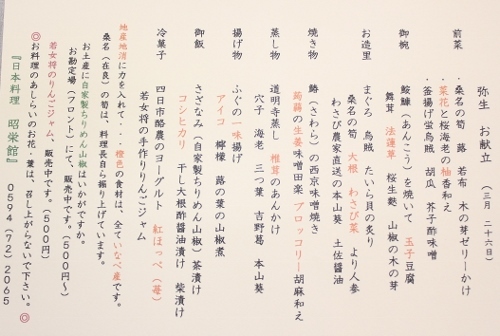 弥生 お献立 (三月 二十六日)
前菜
・桑名の筍 蕗 若布 木の芽ゼリーかけ
・菜花と桜海老の柚香和え
・釜揚げ蛍烏賊 胡瓜 芥子酢味噌
御椀
鮟鱇(あんこう)を焼いて 玉子豆腐
舞茸 法蓮草 桜生麩 山椒の木の芽
お造里
まぐろ 烏賊 たいら貝の炙り
桑名の筍 大根 わさび菜 より人参
わさび農家直送の本山葵 土佐醤油
焼き物
鰆(さわら)の西京味噌焼き
蒟蒻の生姜味噌田楽 ブロッコリー胡麻和え
蒸し物
道明寺蒸し 椎茸のあんかけ
穴子 海老 三つ葉 吉野葛 本山葵
揚げ物
ふぐの一味揚げ
アイコ 檸檬 蕗の葉の山椒煮
御飯
さざなみ(自家製ちりめん山椒)茶漬け
コシヒカリ 干し大根酢醤油漬け 柴漬け
冷菓子
四日市酪農のヨーグルト 紅ほっぺ(苺)
若女将の手作りりんごジャム
地産地消に力を入れて・・・橙色の食材は、全ていなべ産です。
桑名(在良)の筍は、料理長自ら掘り上げています。
お土産に自家製ちりめん山椒はいかがですか。
お勘定場(フロント)にて、販売中です。(500円〜)
若女将のりんごジャム、販売中です。(500円)
◎お料理のあしらいのお花・葉は、召し上がらないで下さい。◎
『日本料理 昭栄館』 0594(72)2065